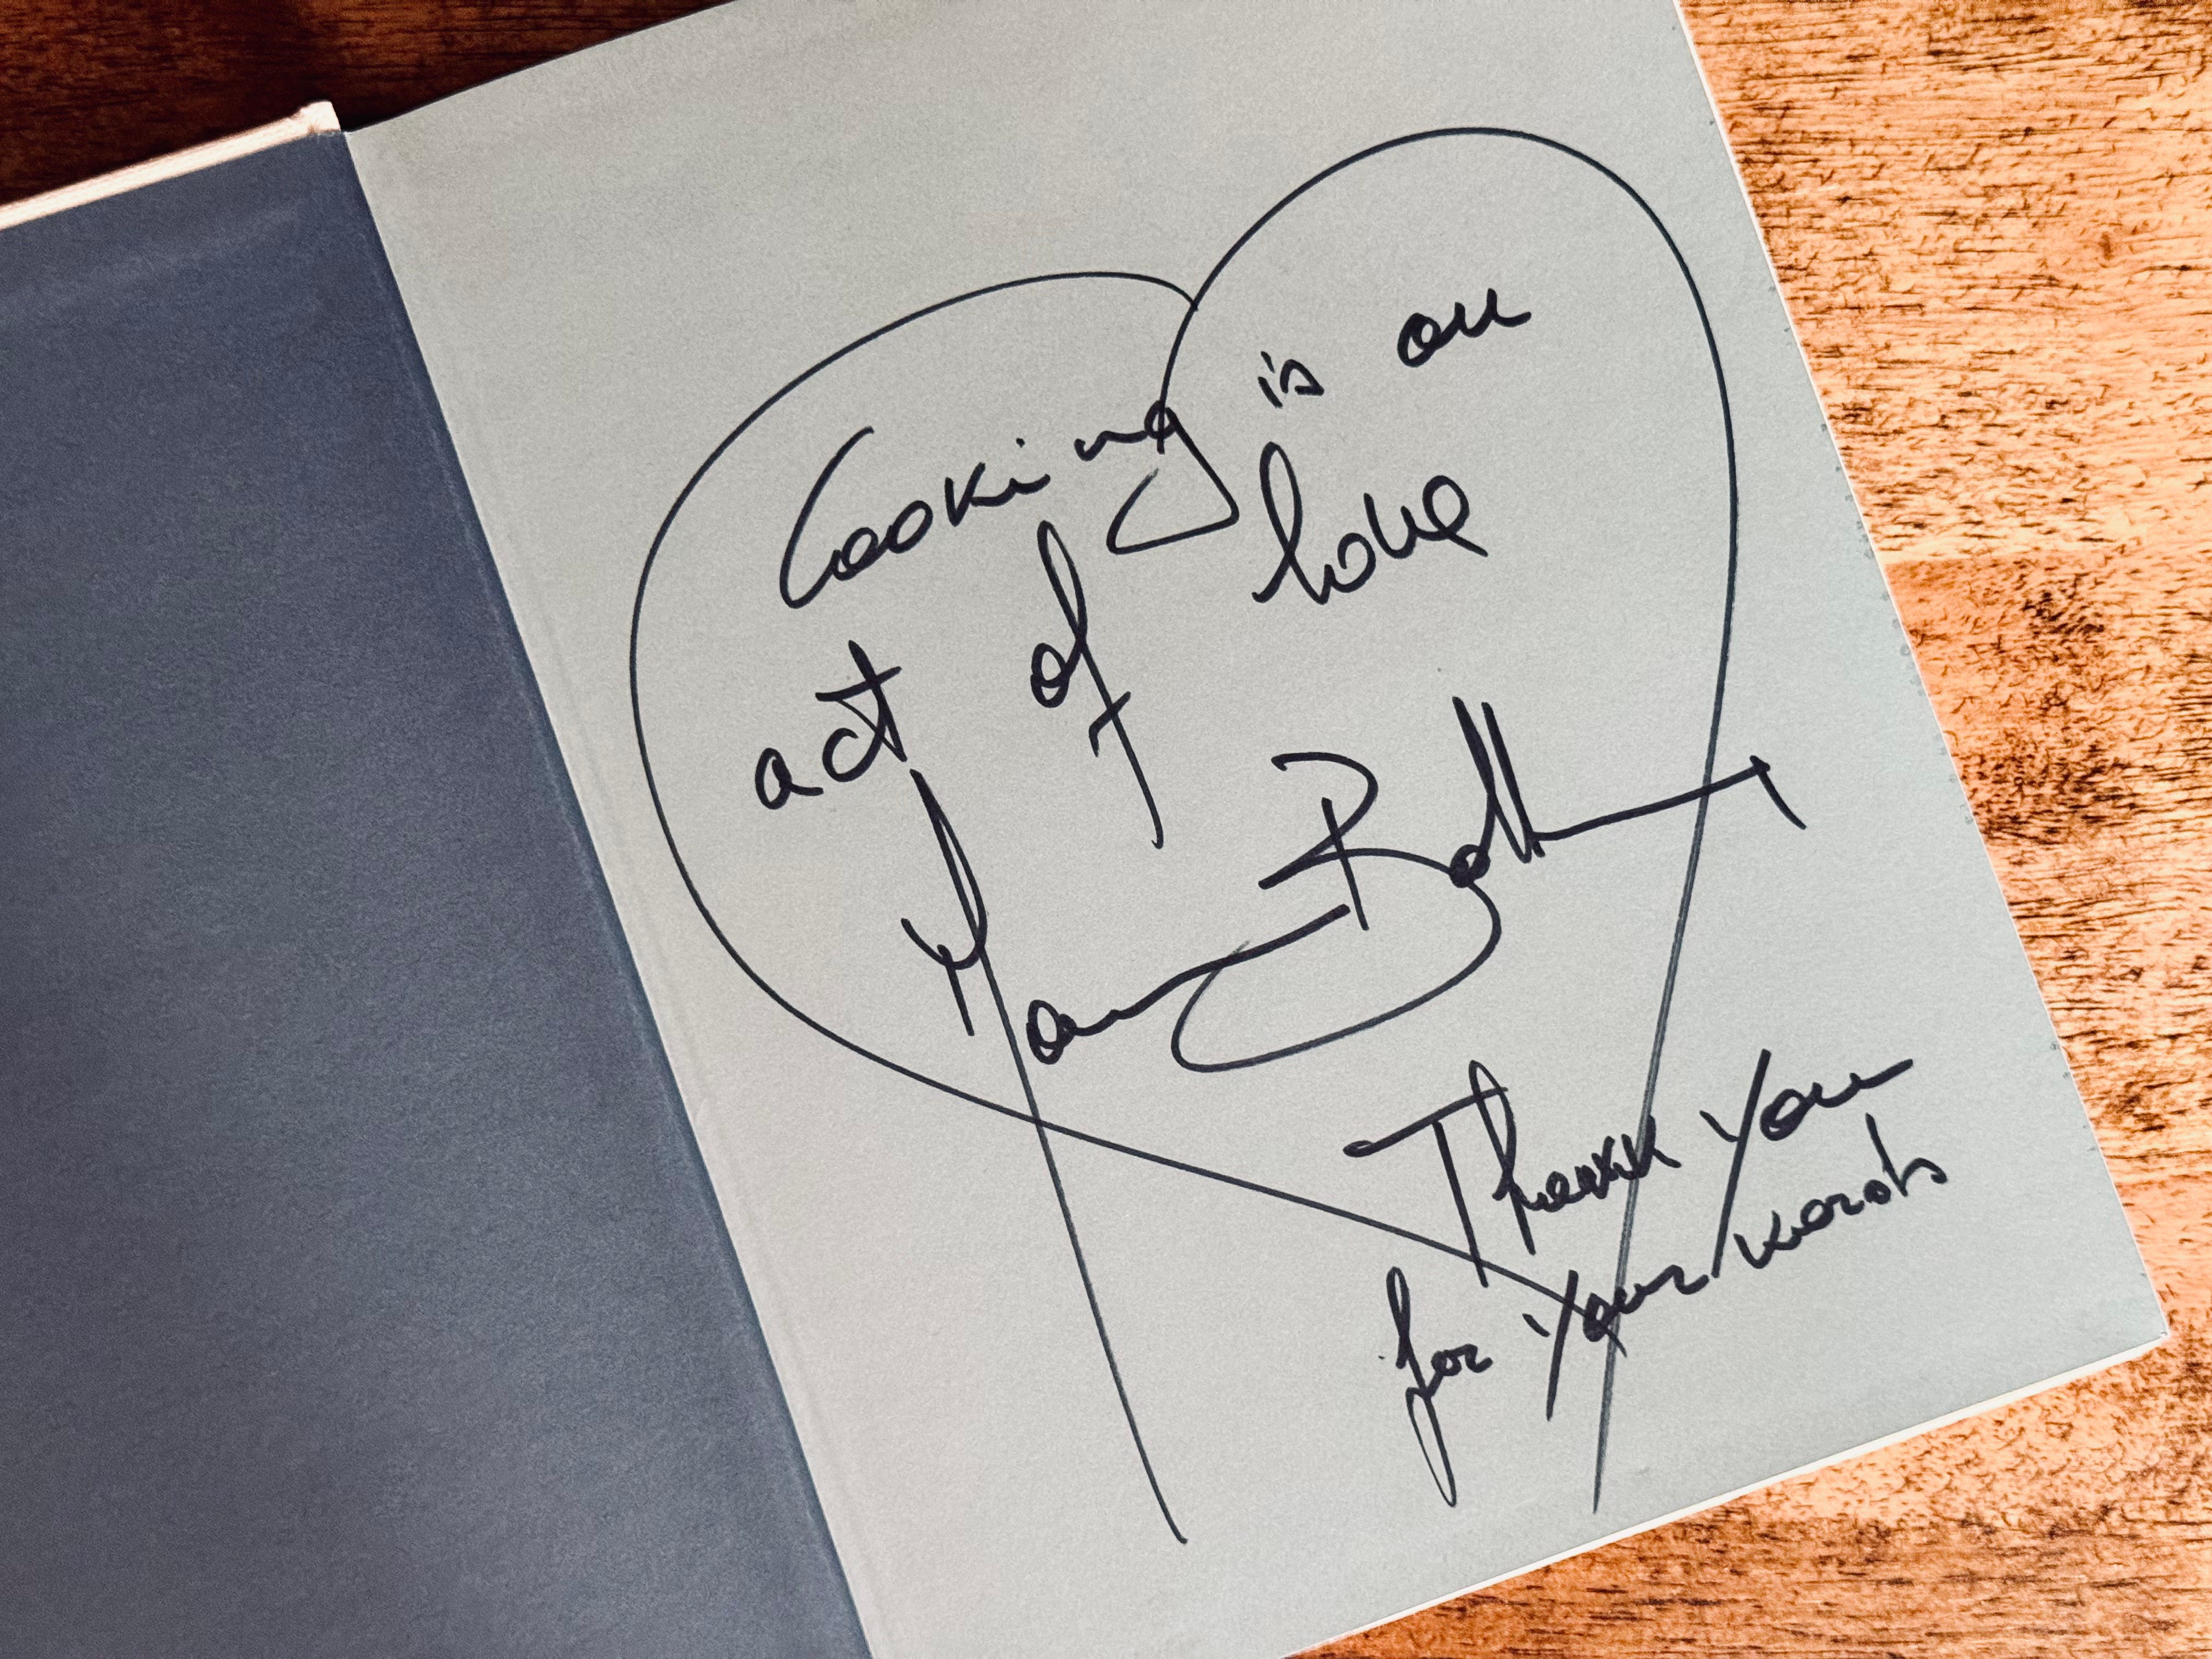 Cooking is an
act of love
Thank you
for your words